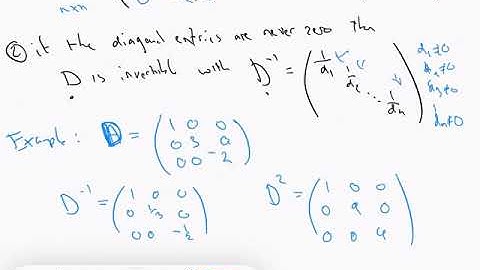 n×n
② if the diagonal entries are never zero then
D is invertible with D⁻¹ = ( 1/d₁ 1/d₂ ⋱ 1/dₙ ) d₁≠0 d₂≠0 d₃≠0 dₙ≠0
Example: D = ( 1 0 0
0 3 0
0 0 -2 )
D⁻¹ = ( 1 0 0 D² = ( 1 0 0
0 1/3 0 0 9 0
0 0 -1/2 ) 0 0 4 )